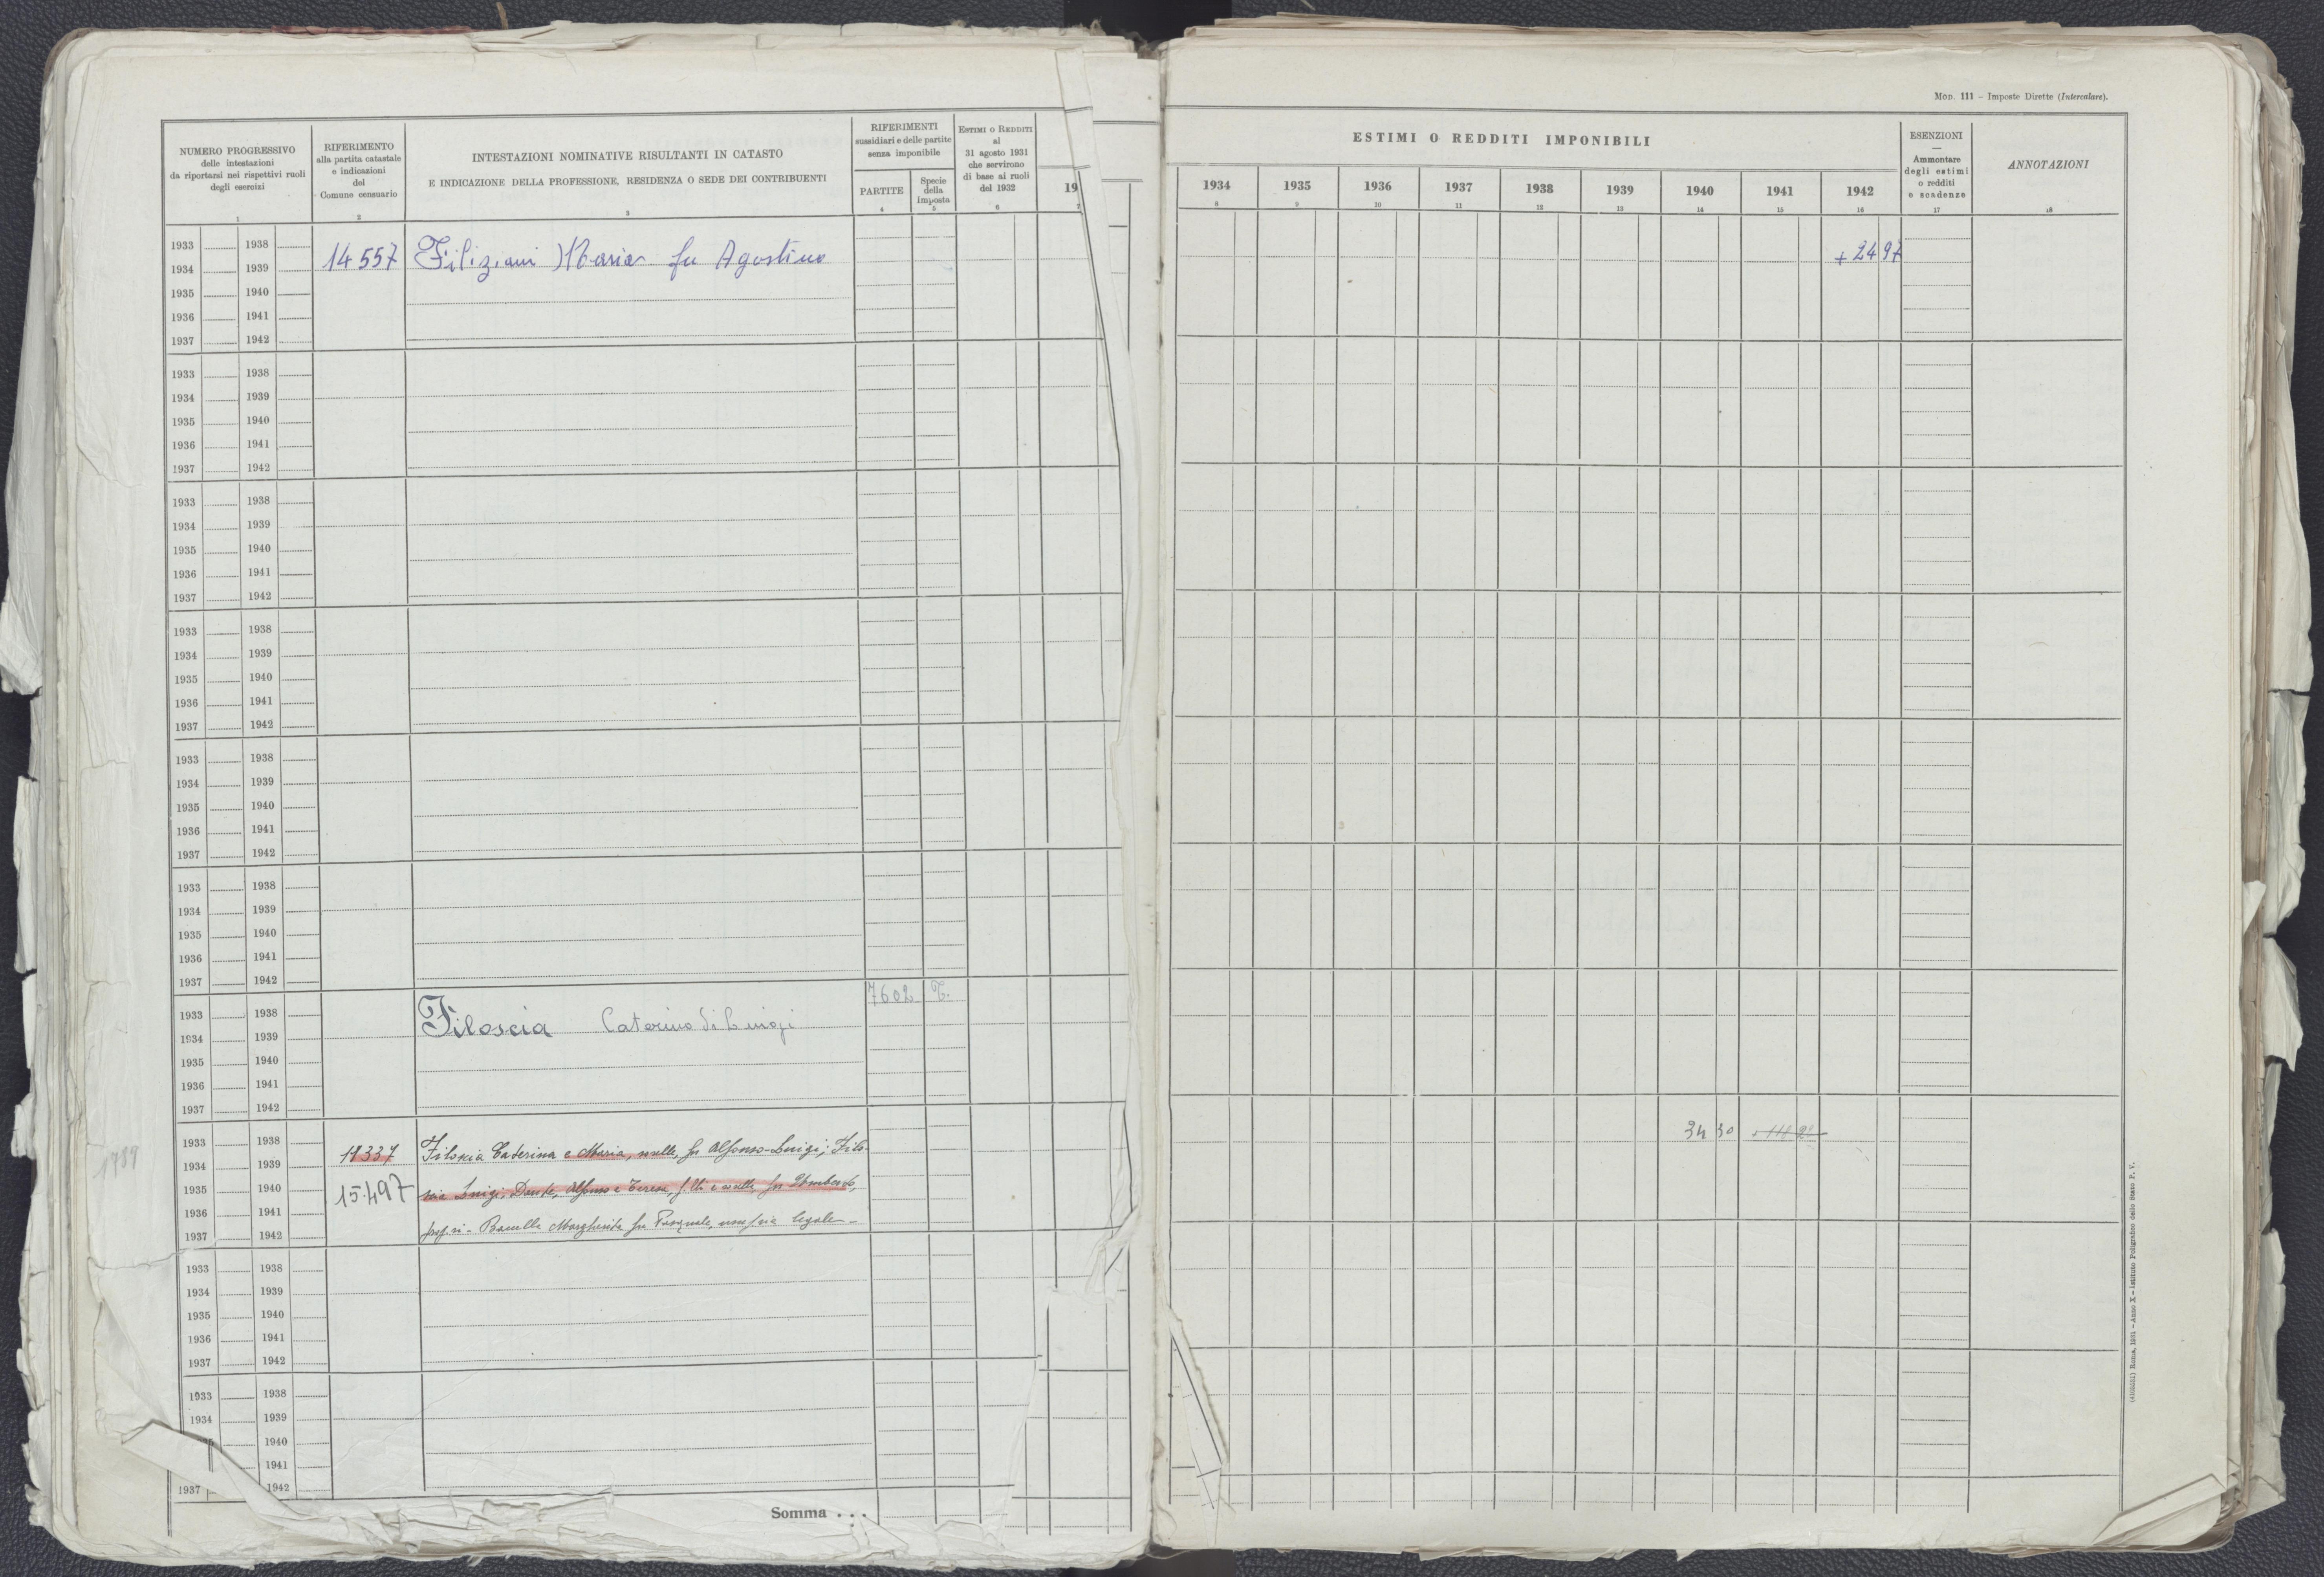 Mod. 111 – Imposte Dirette (Intercalare).
NUMERO PROGRESSIVO
delle intestazioni
da riportarsi nei rispettivi ruoli
degli esercizi
1
RIFERIMENTO
alla partita catastale
e indicazioni
del
Comune censuario
2
INTESTAZIONI NOMINATIVE RISULTANTI IN CATASTO
E INDICAZIONE DELLA PROFESSIONE, RESIDENZA O SEDE DEI CONTRIBUENTI
3
RIFERIMENTI
sussidiari e delle partite
senza imponibile
PARTITE
4
Specie
della
Imposta
5
ESTIMI O REDDITI
al
31 agosto 1931
che servirono
di base ai ruoli
del 1932
6
19
ESTIMI O REDDITI IMPONIBILI
1934 1935 1936 1937 1938 1939 1940 1941 1942
8 9 10 11 12 13 14 15 16
ESENZIONI
—
Ammontare
degli estimi
o redditi
e scadenze
17
ANNOTAZIONI
18
1933 1938
1934 1939 14557 Filiziani Maria fu Agostino + 24 97
1935 1940
1936 1941
1937 1942
1933 1938
1934 1939
1935 1940
1936 1941
1937 1942
1933 1938
1934 1939
1935 1940
1936 1941
1937 1942
1933 1938
1934 1939
1935 1940
1936 1941
1937 1942
1933 1938
1934 1939
1935 1940
1936 1941
1937 1942
1933 1938
1934 1939
1935 1940
1936 1941
1937 1942
7602 T.
1933 1938 Filoscia Caterina di Luigi
1934 1939
1935 1940
1936 1941
1937 1942
1933 1938 34 30
1934 1939 Filoscia Caterina e Maria, sorelle, fu Alfonso-Luigi; Filo-
1935 1940 15497 scia Luigi, Dante, Alfonso e Teresa, f.lli e sorelle fu
1936 1941
1937 1942 Margherita fu Pasquale, legale
1933 1938
1934 1939
1935 1940
1936 1941
1937 1942
1933 1938
1934 1939
1940
1941
1937 1942
Somma . . .
Roma, 1931 – Anno X – Istituto Poligrafico dello Stato P. V.